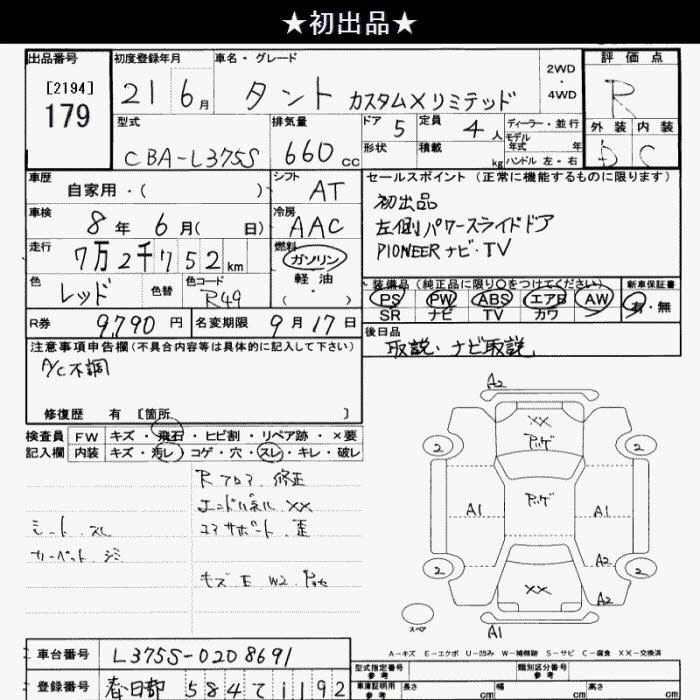 ★初出品★
出品番号 初度登録年月 車名・グレード 2WD ・ 4WD 評価点
[2194] 179 21 6月 タント カスタムXリミテッド R
型式 排気量 ドア 5 定員 4人 ディーラー・並行 外装 内装
CBA-L375S 660cc 形状 積載 kg モデル年式 年 ハンドル 左・右 D C
車歴 自家用・( ) シフト AT セールスポイント(正常に機能するものに限ります)
車検 8年 6月( 日) 冷房 AAC 初出品
左側パワースライドドア
走行 7万2千752km 燃料 ガソリン PIONEERナビ・TV
軽油
色 レッド 色替 色カラーコード R49 ( ・ ) 装備品(純正品に限り○をつけてください) 新車保証書
PS PW ABS エアB AW 有・無
R券 9,790円 名変期限 9月17日 SR ナビ TV カワ
後日品
注意事項申告欄(不具合内容等は具体的に記入して下さい) 取説・ナビ取説
A/C不調
修復歴 有 [箇所 ]
検査員 FW キズ・飛石・ヒビ割・リペア跡・×要
記入欄 内装 キズ・汚レ・コゲ・穴・スレ・キレ・破レ
Rフロア 修正
エンドパネル XX
シート スレ コアサポート 歪
カーペット シミ
キズ E W2
A2
XX
2 2
A1 A1
A2
2 2
XX A2
スペア A1
A-キズ E-エクボ U-凹み W-補修跡 S-サビ C-腐食 XX-交換済
車台番号 L375S-0208691 型式指定番号 参考 類別区分番号 参考
登録番号 春日部 584 1192 車庫証明用 参考 長さ cm 幅 cm 高さ cm